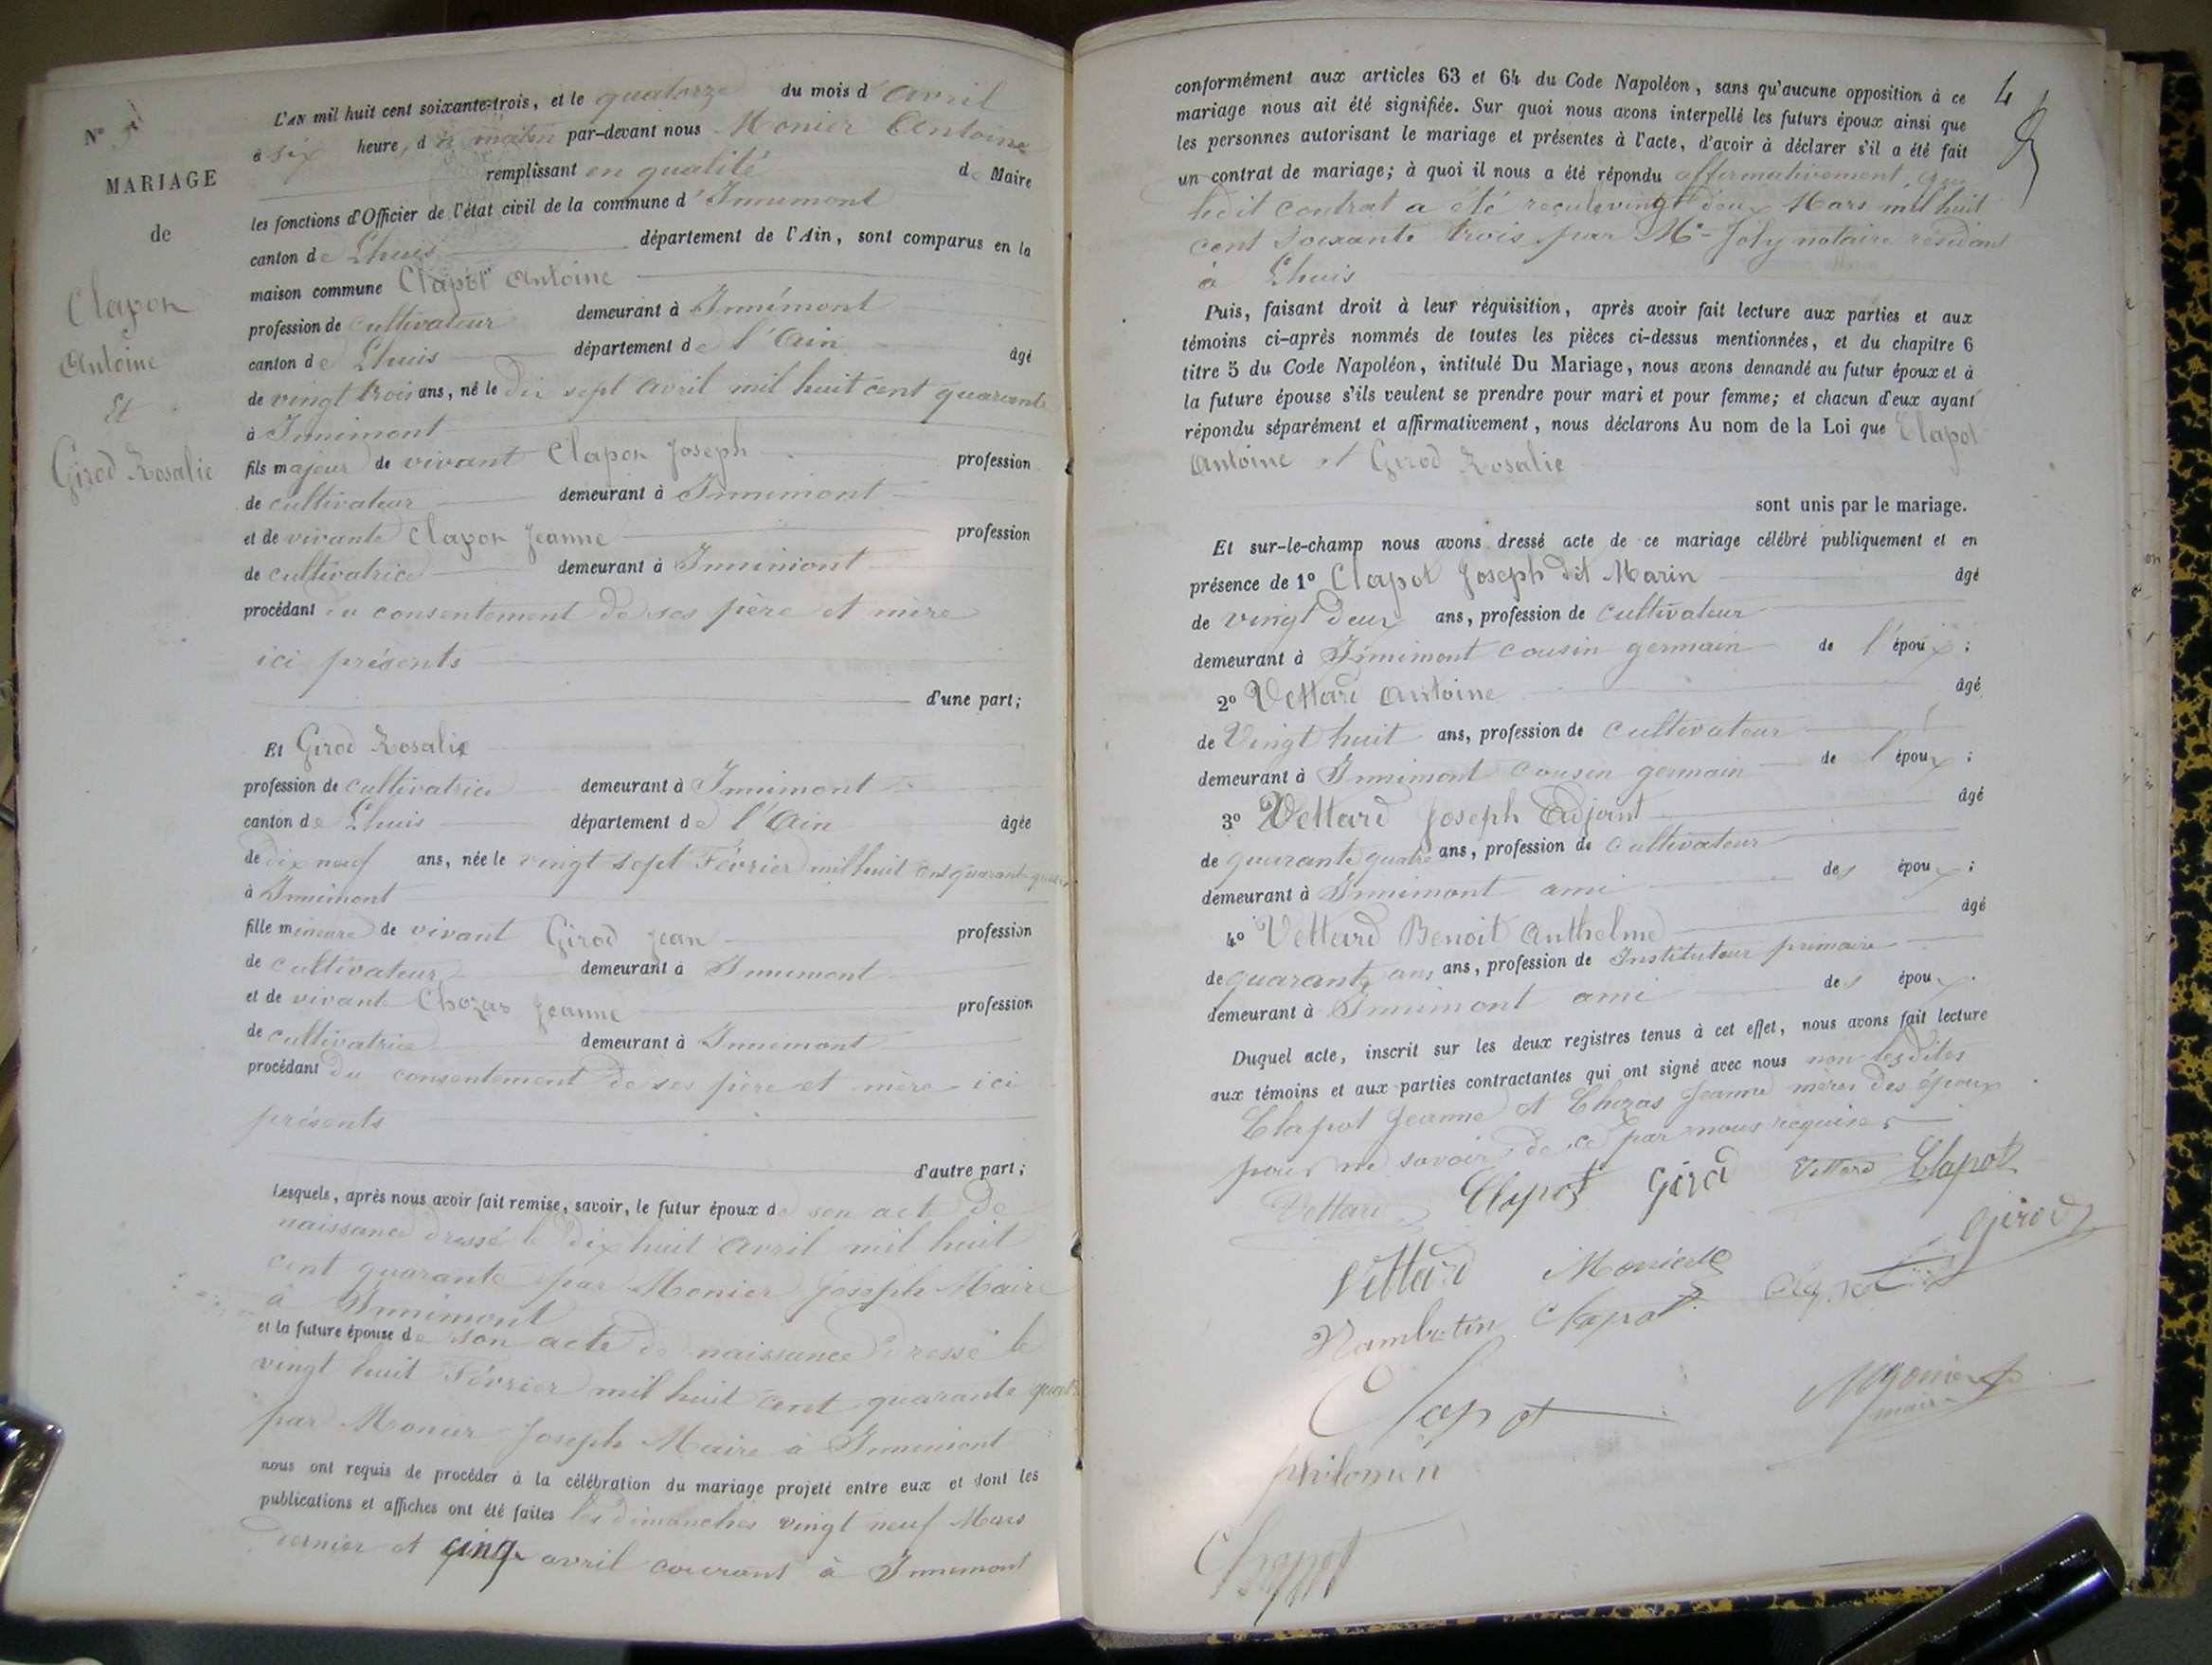 N°
MARIAGE
de
Clapot
Antoine
Et
Girod Rosalie
L'AN mil huit cent soixante-trois, et le quatorze du mois d'avril
à six heure, du matin par-devant nous Monier Antoine
remplissant en qualité de Maire
les fonctions d'Officier de l'état civil de la commune d'Innimont
canton de Lhuis département de l'Ain, sont comparus en la
maison commune Clapot Antoine
profession de cultivateur demeurant à Innimont
canton de Lhuis département de l'Ain âgé
de vingt trois ans, né le dix sept avril mil huit cent quarante
à Innimont
fils majeur de vivant Clapot Joseph profession
de cultivateur demeurant à Innimont
et de vivante Clapot Jeanne profession
de cultivatrice demeurant à Innimont
procédant du consentement de ses père et mère
ici présents
d'une part;
Et Girod Rosalie
profession de cultivatrice demeurant à Innimont
canton de Lhuis département de l'Ain âgée
de dix neuf ans, née le vingt sept Février mil huit cent quarante quatre
à Innimont
fille mineure de vivant Girod Jean profession
de cultivateur demeurant à Innimont
et de vivante Chozas Jeanne profession
de cultivatrice demeurant à Innimont
procédant du consentement de ses père et mère ici
présents
d'autre part;
Lesquels, après nous avoir fait remise, savoir, le futur époux de son acte de
naissance dressé le dix huit avril mil huit
cent quarante par Monier Joseph Maire
à Innimont
et la future épouse de son acte de naissance dressé le
vingt huit Février mil huit cent quarante quatre
par Monier Joseph Maire à Innimont
nous ont requis de procéder à la célébration du mariage projeté entre eux et dont les
publications et affiches ont été faites les dimanches vingt neuf Mars
dernier et cinq avril courant à Innimont
4
conformément aux articles 63 et 64 du Code Napoléon, sans qu'aucune opposition à ce
mariage nous ait été signifiée. Sur quoi nous avons interpellé les futurs époux ainsi que
les personnes autorisant le mariage et présentes à l'acte, d'avoir à déclarer s'il a été fait
un contrat de mariage; à quoi il nous a été répondu affirmativement, que
ledit contrat a été reçu le vingt deux Mars mil huit
cent soixante trois par Me Joly notaire résidant
à Lhuis
Puis, faisant droit à leur réquisition, après avoir fait lecture aux parties et aux
témoins ci-après nommés de toutes les pièces ci-dessus mentionnées, et du chapitre 6
titre 5 du Code Napoléon, intitulé Du Mariage, nous avons demandé au futur époux et à
la future épouse s'ils veulent se prendre pour mari et pour femme; et chacun d'eux ayant
répondu séparément et affirmativement, nous déclarons Au nom de la Loi que Clapot
Antoine et Girod Rosalie
sont unis par le mariage.
Et sur-le-champ nous avons dressé acte de ce mariage célébré publiquement et en
présence de 1° Clapot Joseph dit Marin âgé
de vingt deux ans, profession de cultivateur
demeurant à Innimont cousin germain de l'époux;
2° Vettard Antoine âgé
de Vingt huit ans, profession de cultivateur
demeurant à Innimont cousin germain de l'époux;
3° Vettard Joseph Adjoint âgé
de quarante quatre ans, profession de cultivateur
demeurant à Innimont ami des époux;
4° Vettard Benoit Anthelme âgé
de quarante ans ans, profession de Instituteur primaire
demeurant à Innimont ami des époux.
Duquel acte, inscrit sur les deux registres tenus à cet effet, nous avons fait lecture
aux témoins et aux parties contractantes qui ont signé avec nous non lesdites
Clapot Jeanne et Chozas Jeanne mères des époux
pour ne savoir de ce par nous requises
Vettard Clapot Girod Vettard Clapot
Girod
Vettard Monier
Clapot
Clapot
philomèn
Monier
maire
Clapot